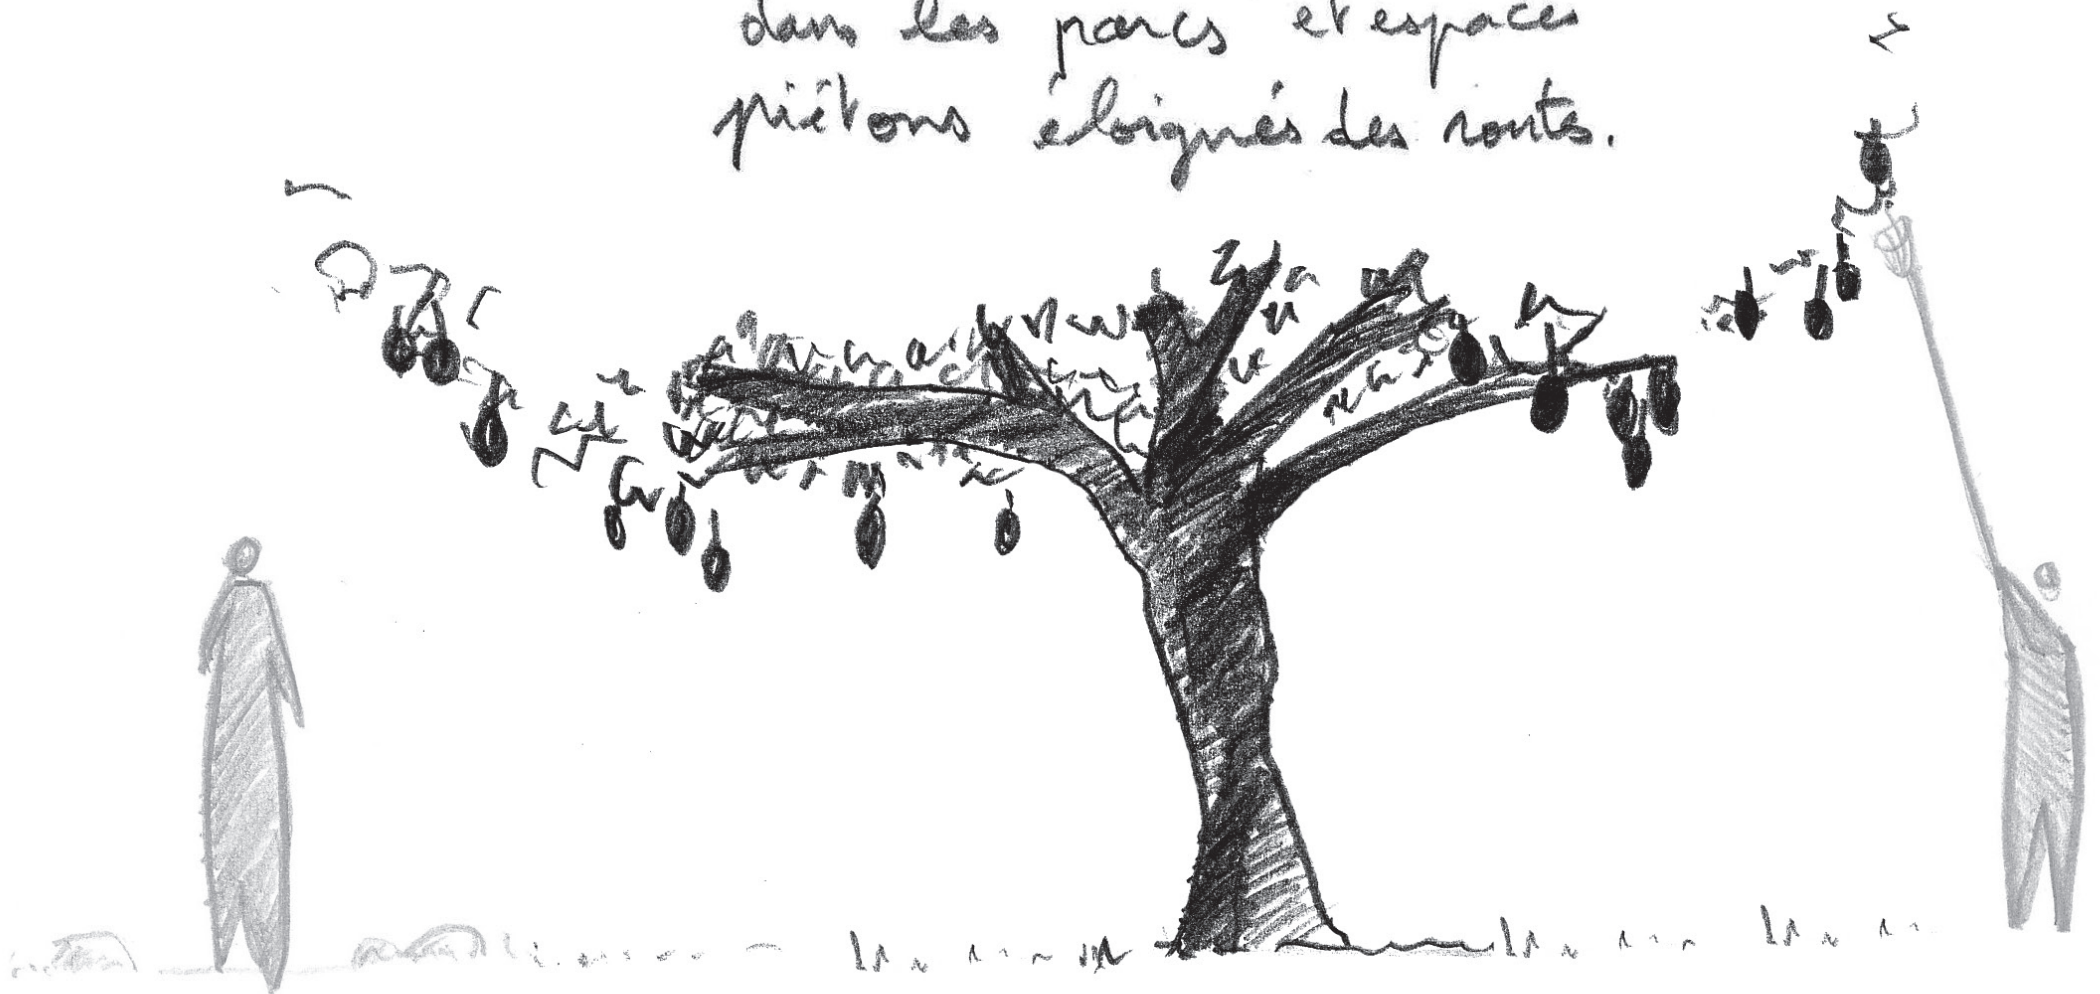 dans les parcs et espaces
piétons éloignés des routes.